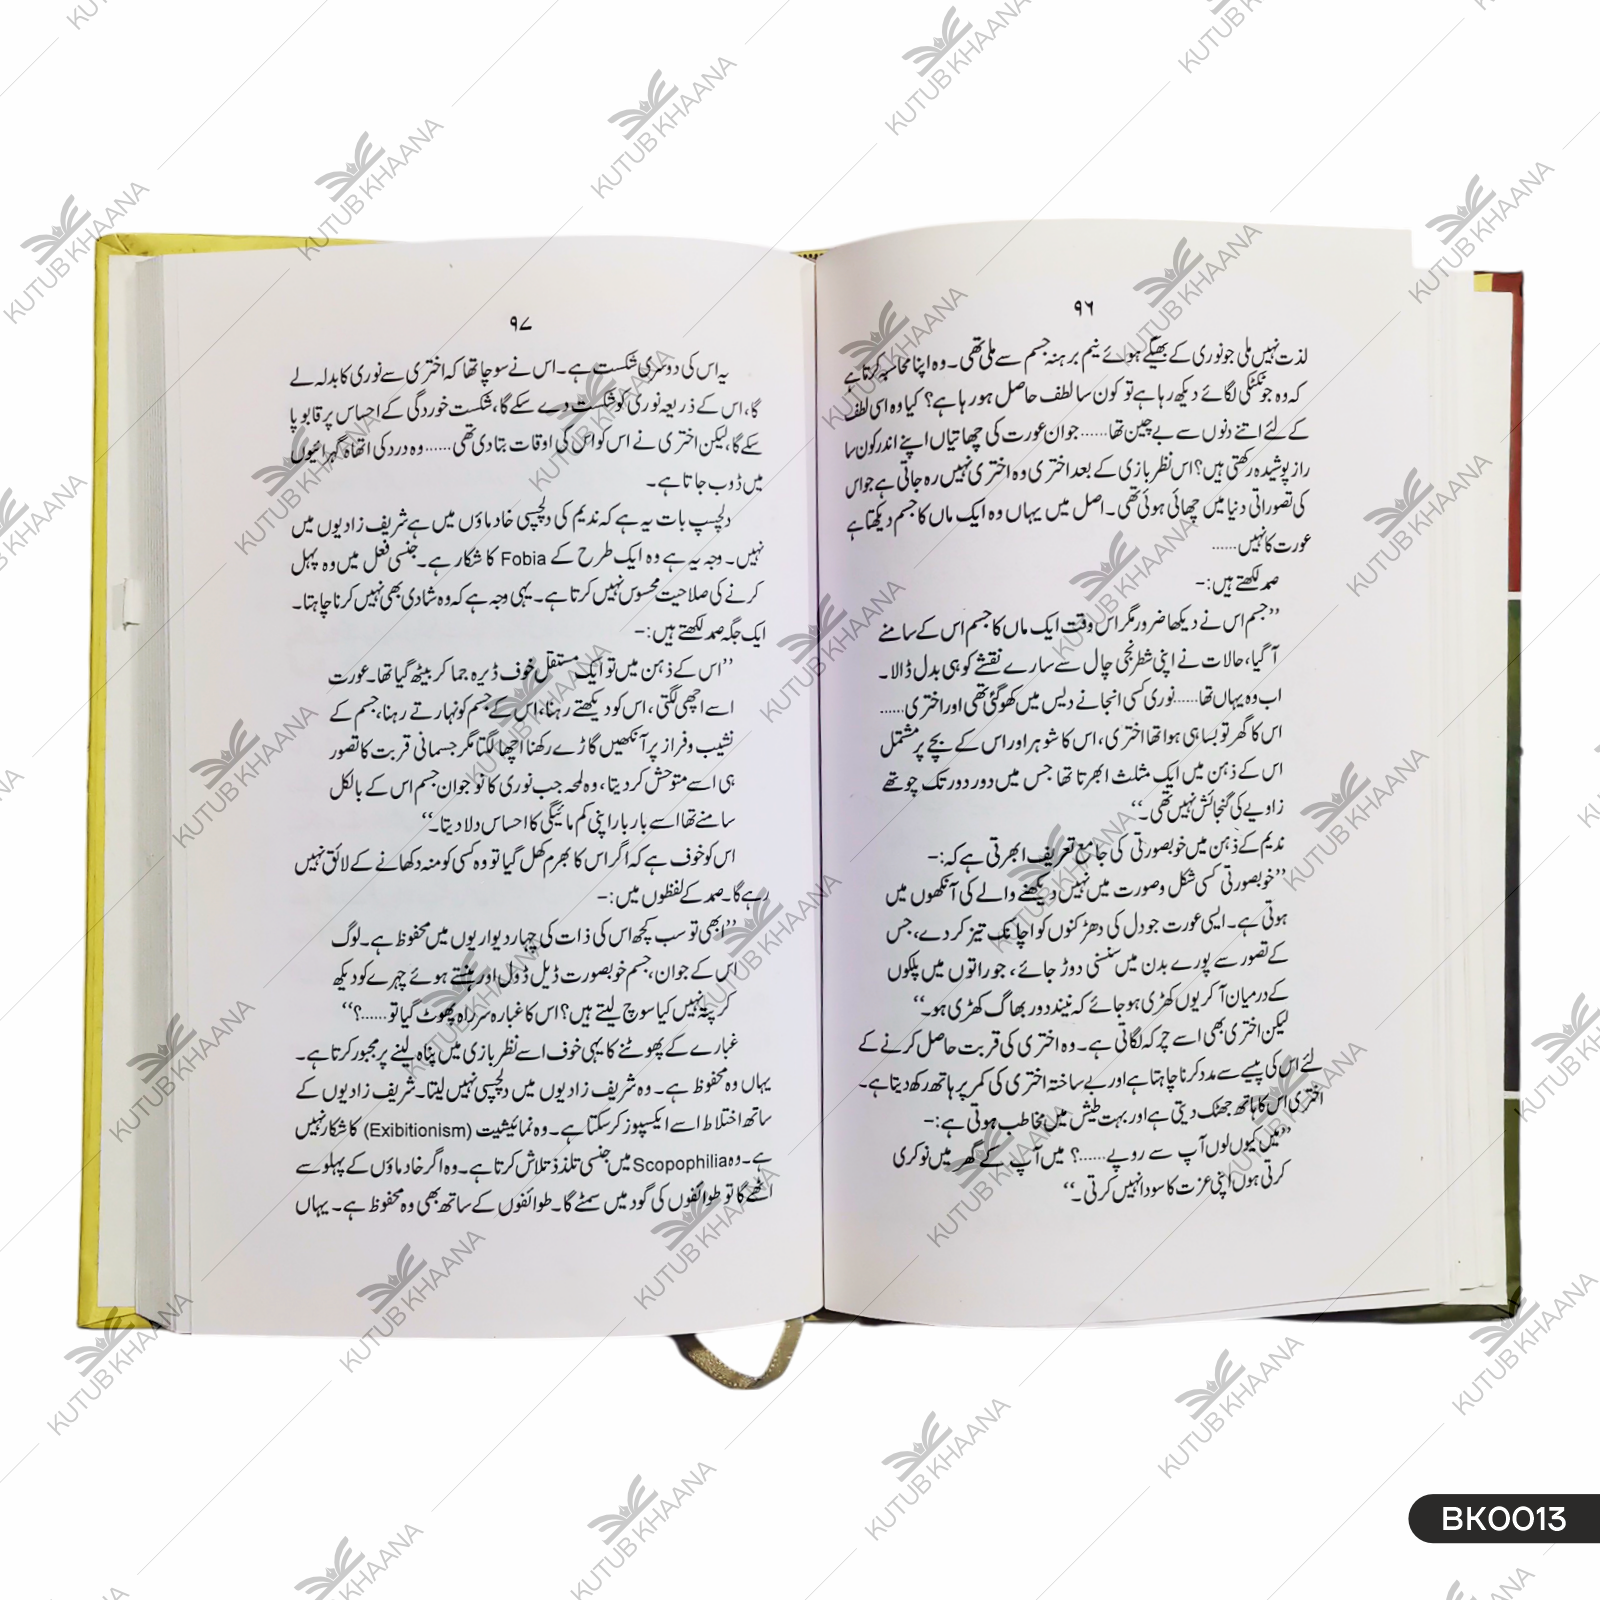 ۹۶
لذت نہیں ملی جو نوری کے بھیگے ہوئے نیم برہنہ جسم سے ملی تھی۔ وہ اپنا محاسبہ کرتا ہے
کہ وہ جو ٹکٹکی لگائے دیکھ رہا ہے تو کون سا لطف حاصل ہو رہا ہے؟ کیا وہ اسی لطف
کے لئے اتنے دنوں سے بے چین تھا...... جوان عورت کی چھاتیاں اپنے اندر کون سا
راز پوشیدہ رکھتی ہیں؟ اس نظر بازی کے بعد اختری وہ اختری نہیں رہ جاتی ہے جو اس
کی تصوراتی دنیا میں چھائی ہوئی تھی۔ اصل میں یہاں وہ ایک ماں کا جسم دیکھتا ہے
عورت کا نہیں......
صمد لکھتے ہیں:-
”جسم اس نے دیکھا ضرور مگر اس وقت ایک ماں کا جسم اس کے سامنے
آ گیا، حالات نے اپنی شطرنجی چال سے سارے نقشے کو ہی بدل ڈالا۔
اب وہ یہاں تھا...... نوری کسی انجانے دیس میں کھو گئی تھی اور اختری......
اس کا گھر تو بسا ہی ہوا تھا اختری، اس کا شوہر اور اس کے بچے پر مشتمل
اس کے ذہن میں ایک مثلث ابھرتا تھا جس میں دور دور تک چوتھے
زاویے کی گنجائش نہیں تھی۔“
ندیم کے ذہن میں خوبصورتی کی جامع تعریف ابھرتی ہے کہ:-
”خوبصورتی کسی شکل و صورت میں نہیں دیکھنے والے کی آنکھوں میں
ہوتی ہے۔ ایسی عورت جو دل کی دھڑکنوں کو اچانک تیز کر دے، جس
کے تصور سے پورے بدن میں سنسنی دوڑ جائے، جو راتوں میں پلکوں
کے درمیان آ کر یوں کھڑی ہو جائے کہ نیند دور بھاگ کھڑی ہو۔“
لیکن اختری بھی اسے چرکہ لگاتی ہے۔ وہ اختری کی قربت حاصل کرنے کے
لئے اس کی پیسے سے مدد کرنا چاہتا ہے اور بے ساختہ اختری کی کمر پر ہاتھ رکھ دیتا ہے۔
اختری اس کا ہاتھ جھٹک دیتی ہے اور بہت طیش میں مخاطب ہوتی ہے:-
”میں کیوں لوں آپ سے روپے......؟ میں آپ کے گھر میں نوکری
کرتی ہوں اپنی عزت کا سودا نہیں کرتی۔“
۹۷
یہ اس کی دوسری شکست ہے۔ اس نے سوچا تھا کہ اختری سے نوری کا بدلہ لے
گا، اس کے ذریعہ نوری کو شکست دے سکے گا، شکست خوردگی کے احساس پر قابو پا
سکے گا، لیکن اختری نے اس کو اس کی اوقات بتا دی تھی...... وہ درد کی اتھاہ گہرائیوں
میں ڈوب جاتا ہے۔
دلچسپ بات یہ ہے کہ ندیم کی دلچسپی خادماؤں میں ہے شریف زادیوں میں
نہیں۔ وجہ یہ ہے وہ ایک طرح کے Fobia کا شکار ہے۔ جنسی فعل میں وہ پہل
کرنے کی صلاحیت محسوس نہیں کرتا ہے۔ یہی وجہ ہے کہ وہ شادی بھی نہیں کرنا چاہتا۔
ایک جگہ صمد لکھتے ہیں:-
”اس کے ذہن میں تو ایک مستقل خوف ڈیرہ جما کر بیٹھ گیا تھا۔ عورت
اسے اچھی لگتی، اس کو دیکھتے رہنا، اس کے جسم کو نہارتے رہنا، جسم کے
نشیب و فراز پر آنکھیں گاڑے رکھنا اچھا لگتا مگر جسمانی قربت کا تصور
ہی اسے متوحش کر دیتا، وہ لمحہ جب نوری کا نوجوان جسم اس کے بالکل
سامنے تھا اسے بار بار اپنی کم مائیگی کا احساس دلا دیتا۔“
اس کو خوف ہے کہ اگر اس کا بھرم کھل گیا تو وہ کسی کو منہ دکھانے کے لائق نہیں
رہے گا۔ صمد کے لفظوں میں:-
”ابھی تو سب کچھ اس کی ذات کی چہار دیواریوں میں محفوظ ہے۔ لوگ
اس کے جوان، جسم خوبصورت ڈیل ڈول اور ہنستے ہوئے چہرے کو دیکھ
کر پتہ نہیں کیا سوچ لیتے ہیں؟ اس کا غبارہ سرراہ پھوٹ گیا تو......؟“
غبارے کے پھوٹنے کا یہی خوف اسے نظر بازی میں پناہ لینے پر مجبور کرتا ہے۔
یہاں وہ محفوظ ہے۔ وہ شریف زادیوں میں دلچسپی نہیں لیتا۔ شریف زادیوں کے
ساتھ اختلاط اسے ایکسپوز کر سکتا ہے۔ وہ نمائیشیت (Exibitionism) کا شکار نہیں
ہے۔ وہ Scopophilia میں جنسی تلذذ تلاش کرتا ہے۔ وہ اگر خادماؤں کے پہلو سے
اٹھے گا تو طوائفوں کی گود میں سمٹے گا۔ طوائفوں کے ساتھ بھی وہ محفوظ ہے۔ یہاں
KUTUB KHAANA
BK0013